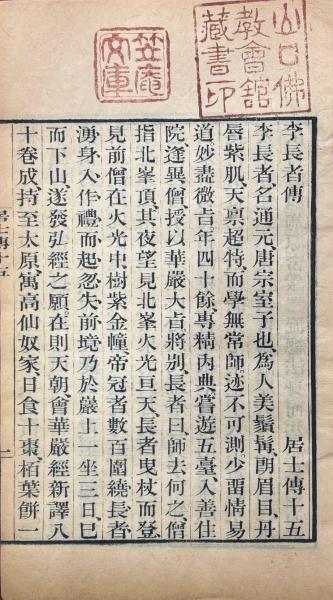 山口佛
教會舘
藏書印
笠庵
文庫
李長者傳　居士傳十五
李長者、名通元、唐宗室子也、為人美鬚髯、朗眉目、丹
唇紫肌、天稟超特、而學無常師、迹不可測、少畱情易
道、妙盡微㫖、年四十餘、專精內典、嘗遊五臺、入善住
院、逢異僧、授以華嚴大㫖、將別、長者曰、師去何之、僧
指北峯頂、其夜望見北峯火光亘天、長者曳杖而登、
見前僧在火光中、樹紫金幢、帝冠者數百圍繞、長者
湧身入、作禮而起、忽失前境、乃於巖上一坐三日、巳
而下山、遂發弘經之願、在則天朝、會華嚴經新譯八
十卷成、持至太原、寓高仙奴家、日食十棗栢葉餅一
居士傳十五
一